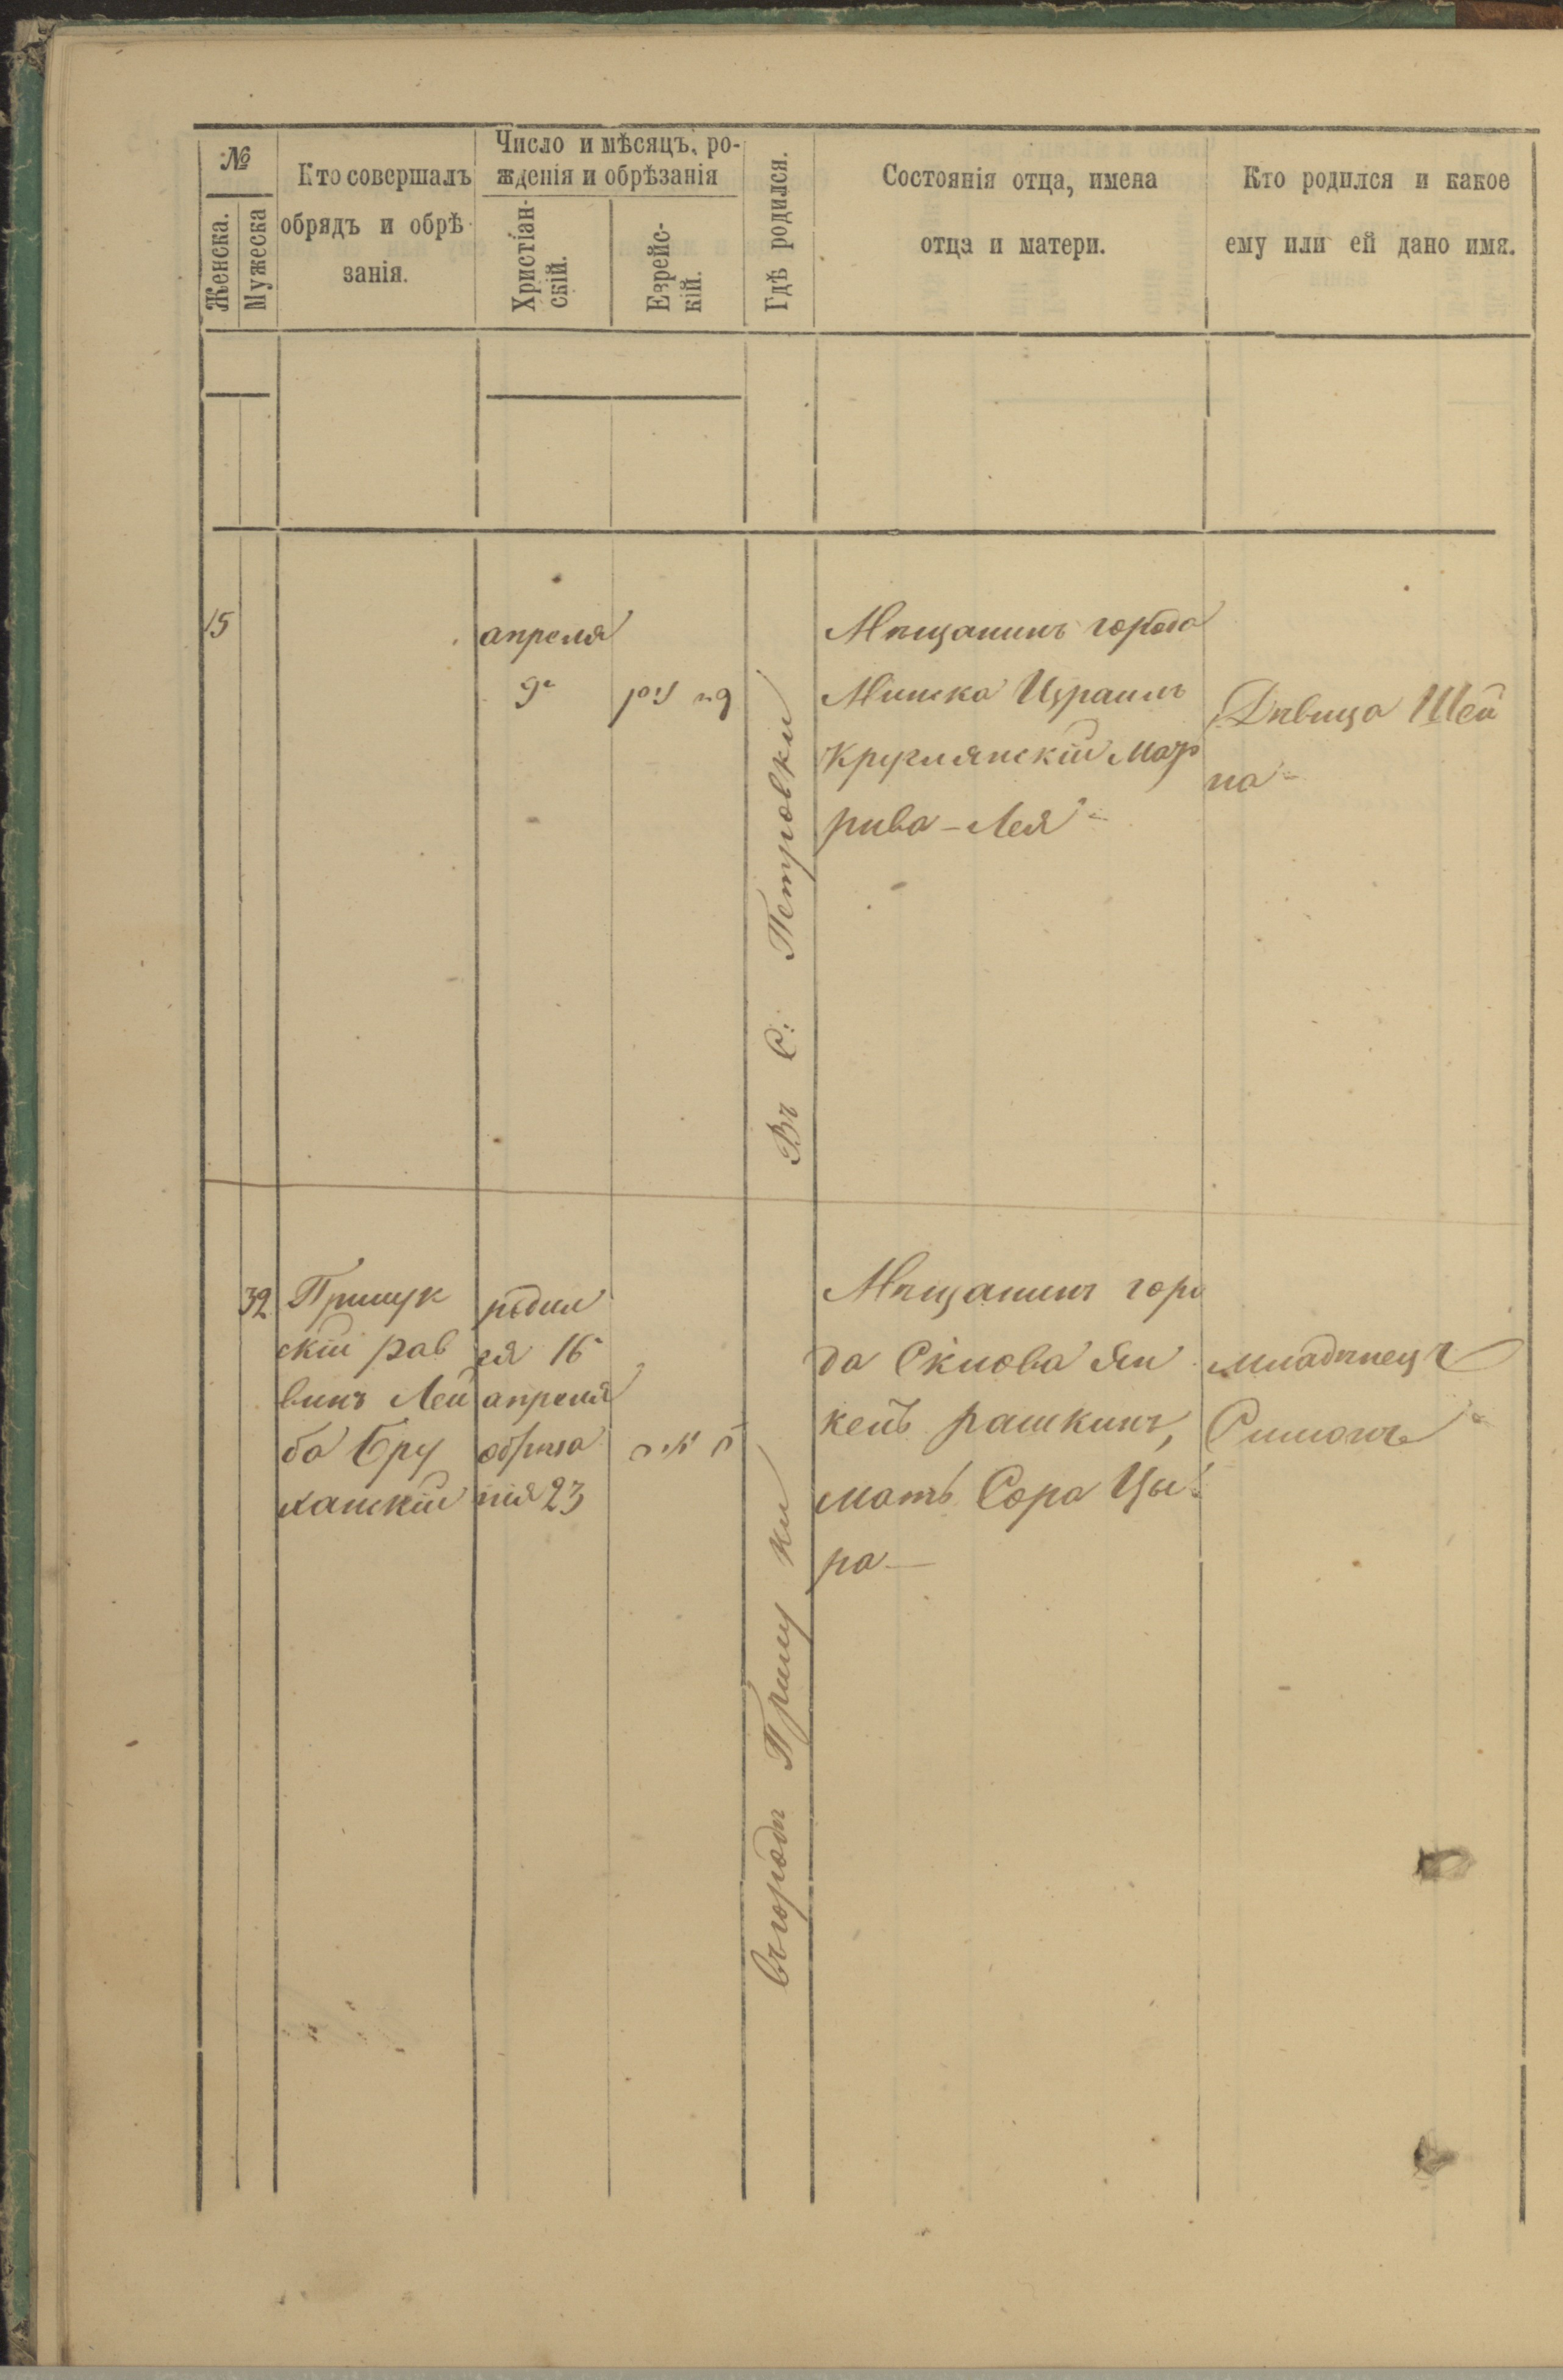 №
Женска.
Мужеска
Кто совершалъ
обрядъ и обрѣ-
занія.
Число и мѣсяцъ, ро-
жденія и обрѣзанія
Христіан-
скій.
Еврейс-
кій.
Гдѣ родился.
Состоянія отца, имена
отца и матери.
Кто родился и какое
ему или ей дано имя.
15
апреля
9
Въ С. Петровки
Мѣщанинъ города
Минска Израиль
Круглянскій
рива-Лея
Дѣвица Шей
на
32
Прилук
скій рав
винъ Лей
ба Бру
ханскій
родил
ся 16
апреля
обреза
нія 23
Въ городѣ Прилуки
Мѣщанинъ горо
да Сквова Ян
кель Рашкинъ,
мать Сора Цы
ра
младенецъ
Симонъ